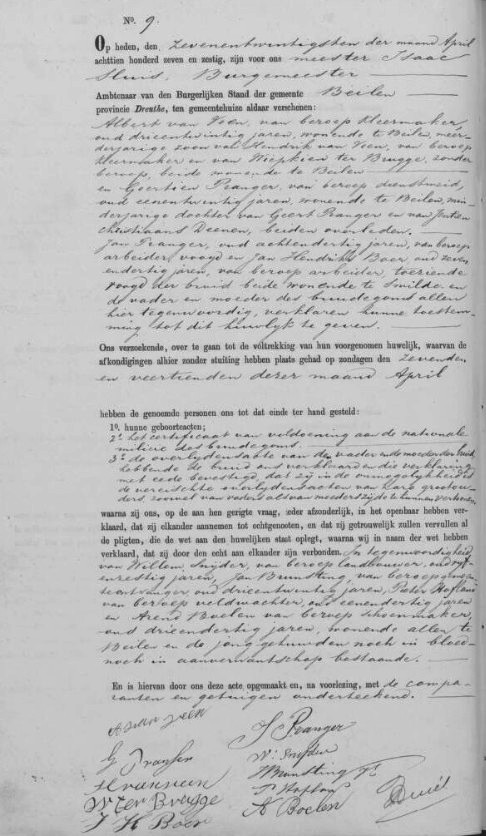 No. 9.
Op heden, den zevenentwintigsten der maand April
achttien honderd zeven en zestig, zijn voor ons meester Isaac
Sluis, Burgemeester
Ambtenaar van den Burgerlijken Stand der gemeente Beilen
provincie Drenthe, ten gemeentehuize aldaar verschenen:
Albert van Veen, van beroep kleermaker
oud drieentwintig jaren, wonende te Beilen, meer-
derjarige zoon van Hendrik van Veen, van beroep
kleermaker en van Wiepkien ter Brugge, zonder
beroep, beide wonende te Beilen
en Geertien Pranger, van beroep dienstmeid,
oud eenentwintig jaren, wonende te Beilen, min-
derjarige dochter van Geert Pranger en van
Christiaans Deenen, beiden overleden.
Jan Pranger, oud achtendertig jaren, van beroep
arbeider, voogd en Jan Hendriks Boer oud zeven
endertig jaren, van beroep arbeider, toeziende
voogd der bruid beide wonende te Smilde en
de vader en moeder des bruidegoms allen
hier tegenwoordig, verklaren hunne toestem-
ming tot dit huwelijk te geven.
Ons verzoekende, over te gaan tot de voltrekking van hun voorgenomen huwelijk, waarvan de
afkondigingen alhier zonder stuiting hebben plaats gehad op zondagen den zevenden
en veertienden dezer maand April
hebben de genoemde personen ons tot dat einde ter hand gesteld:
1º. hunne geboorteacten;
2º. het certificaat van voldoening aan de nationale
militie des bruidegoms.
3º. de overlydensacte van den vader en de moeder der bruid
hebbende de bruid ons verklaard en die verklaring
met eede bevestigd dat zij in de onmogelijkheid is
de vereischte overlydensacten van hare grootou-
ders zoowel van vaders als van moeders zijde te kunnen vertoonen
waarna zij ons, op de aan hen gerigte vraag, ieder afzonderlijk, in het openbaar hebben ver-
klaard, dat zij elkander aannemen tot echtgenooten, en dat zij getrouwelijk zullen vervullen al
de pligten, die de wet aan den huwelijken staat oplegt, waarna wij in naam der wet hebben
verklaard, dat zij door den echt aan elkander zijn verbonden. In tegenwoordigheid
van Willem Snijder, van beroep landbouwer, oud vijf-
enzestig jaren, Jan Brunsting, van beroep
oud drieentwintig jaren, Pieter Hofland
van beroep veldwachter, oud eenendertig jaren
en Arend Boelen van beroep schoenmaker,
oud drieendertig jaren, wonende allen te
Beilen en de jonggehuwden noch in bloed
noch in aanverwantschap bestaande.
En is hiervan door ons deze acte opgemaakt en, na voorlezing, met de compa-
ranten en getuigen onderteekend.
A van Veen
J Pranger
G Pranger
W. Snijder
H van Veen
J Brunsting
W Ter Brugge
A Boelen
J H Boer